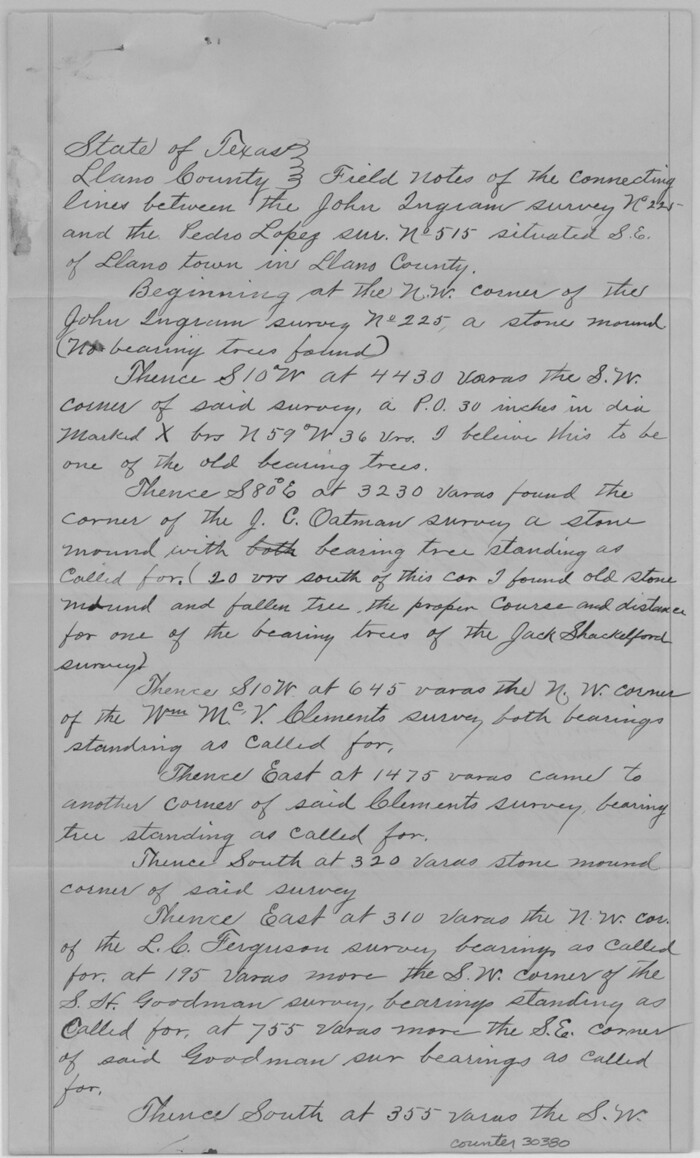 State of Texas }
Llano County } Field Notes of the connecting
lines between the John Ingram survey No 225
and the Pedro Lopez sur. No 515 situated S.E.
of Llano town in Llano County.
Beginning at the N.W. corner of the
John Ingram survey No 225, a stone mound
(No bearing trees found)
Thence S10°W at 4430 varas the S.W.
corner of said survey, a P.O. 30 inches in dia
marked X brs N59°W 36 vrs. I beleive this to be
one of the old bearing trees.
Thence S80°E at 3230 varas found the
corner of the J. C. Oatman survey a stone
mound with both bearing tree standing as
called for. (20 vrs south of this cor I found old stone
mound and fallen tree, the proper course and distance
for one of the bearing trees of the Jack Shackelford
survey)
Thence S10W at 645 varas the N.W. corner
of the Wm Mc. V. Clements survey both bearings
standing as called for,
Thence East at 1475 varas came to
another corner of said Clements survey, bearing
tree standing as called for.
Thence South at 320 varas stone mound
corner of said survey
Thence East at 310 varas the N.W. cor.
of the L. C. Ferguson survey bearings as called
for. at 195 varas more the S.W. corner of the
S. H. Goodman survey, bearings standing as
called for, at 755 varas more the S.E. corner
of said Goodman sur bearings as called
for.
Thence South at 355 varas the S.W.
counter 30380